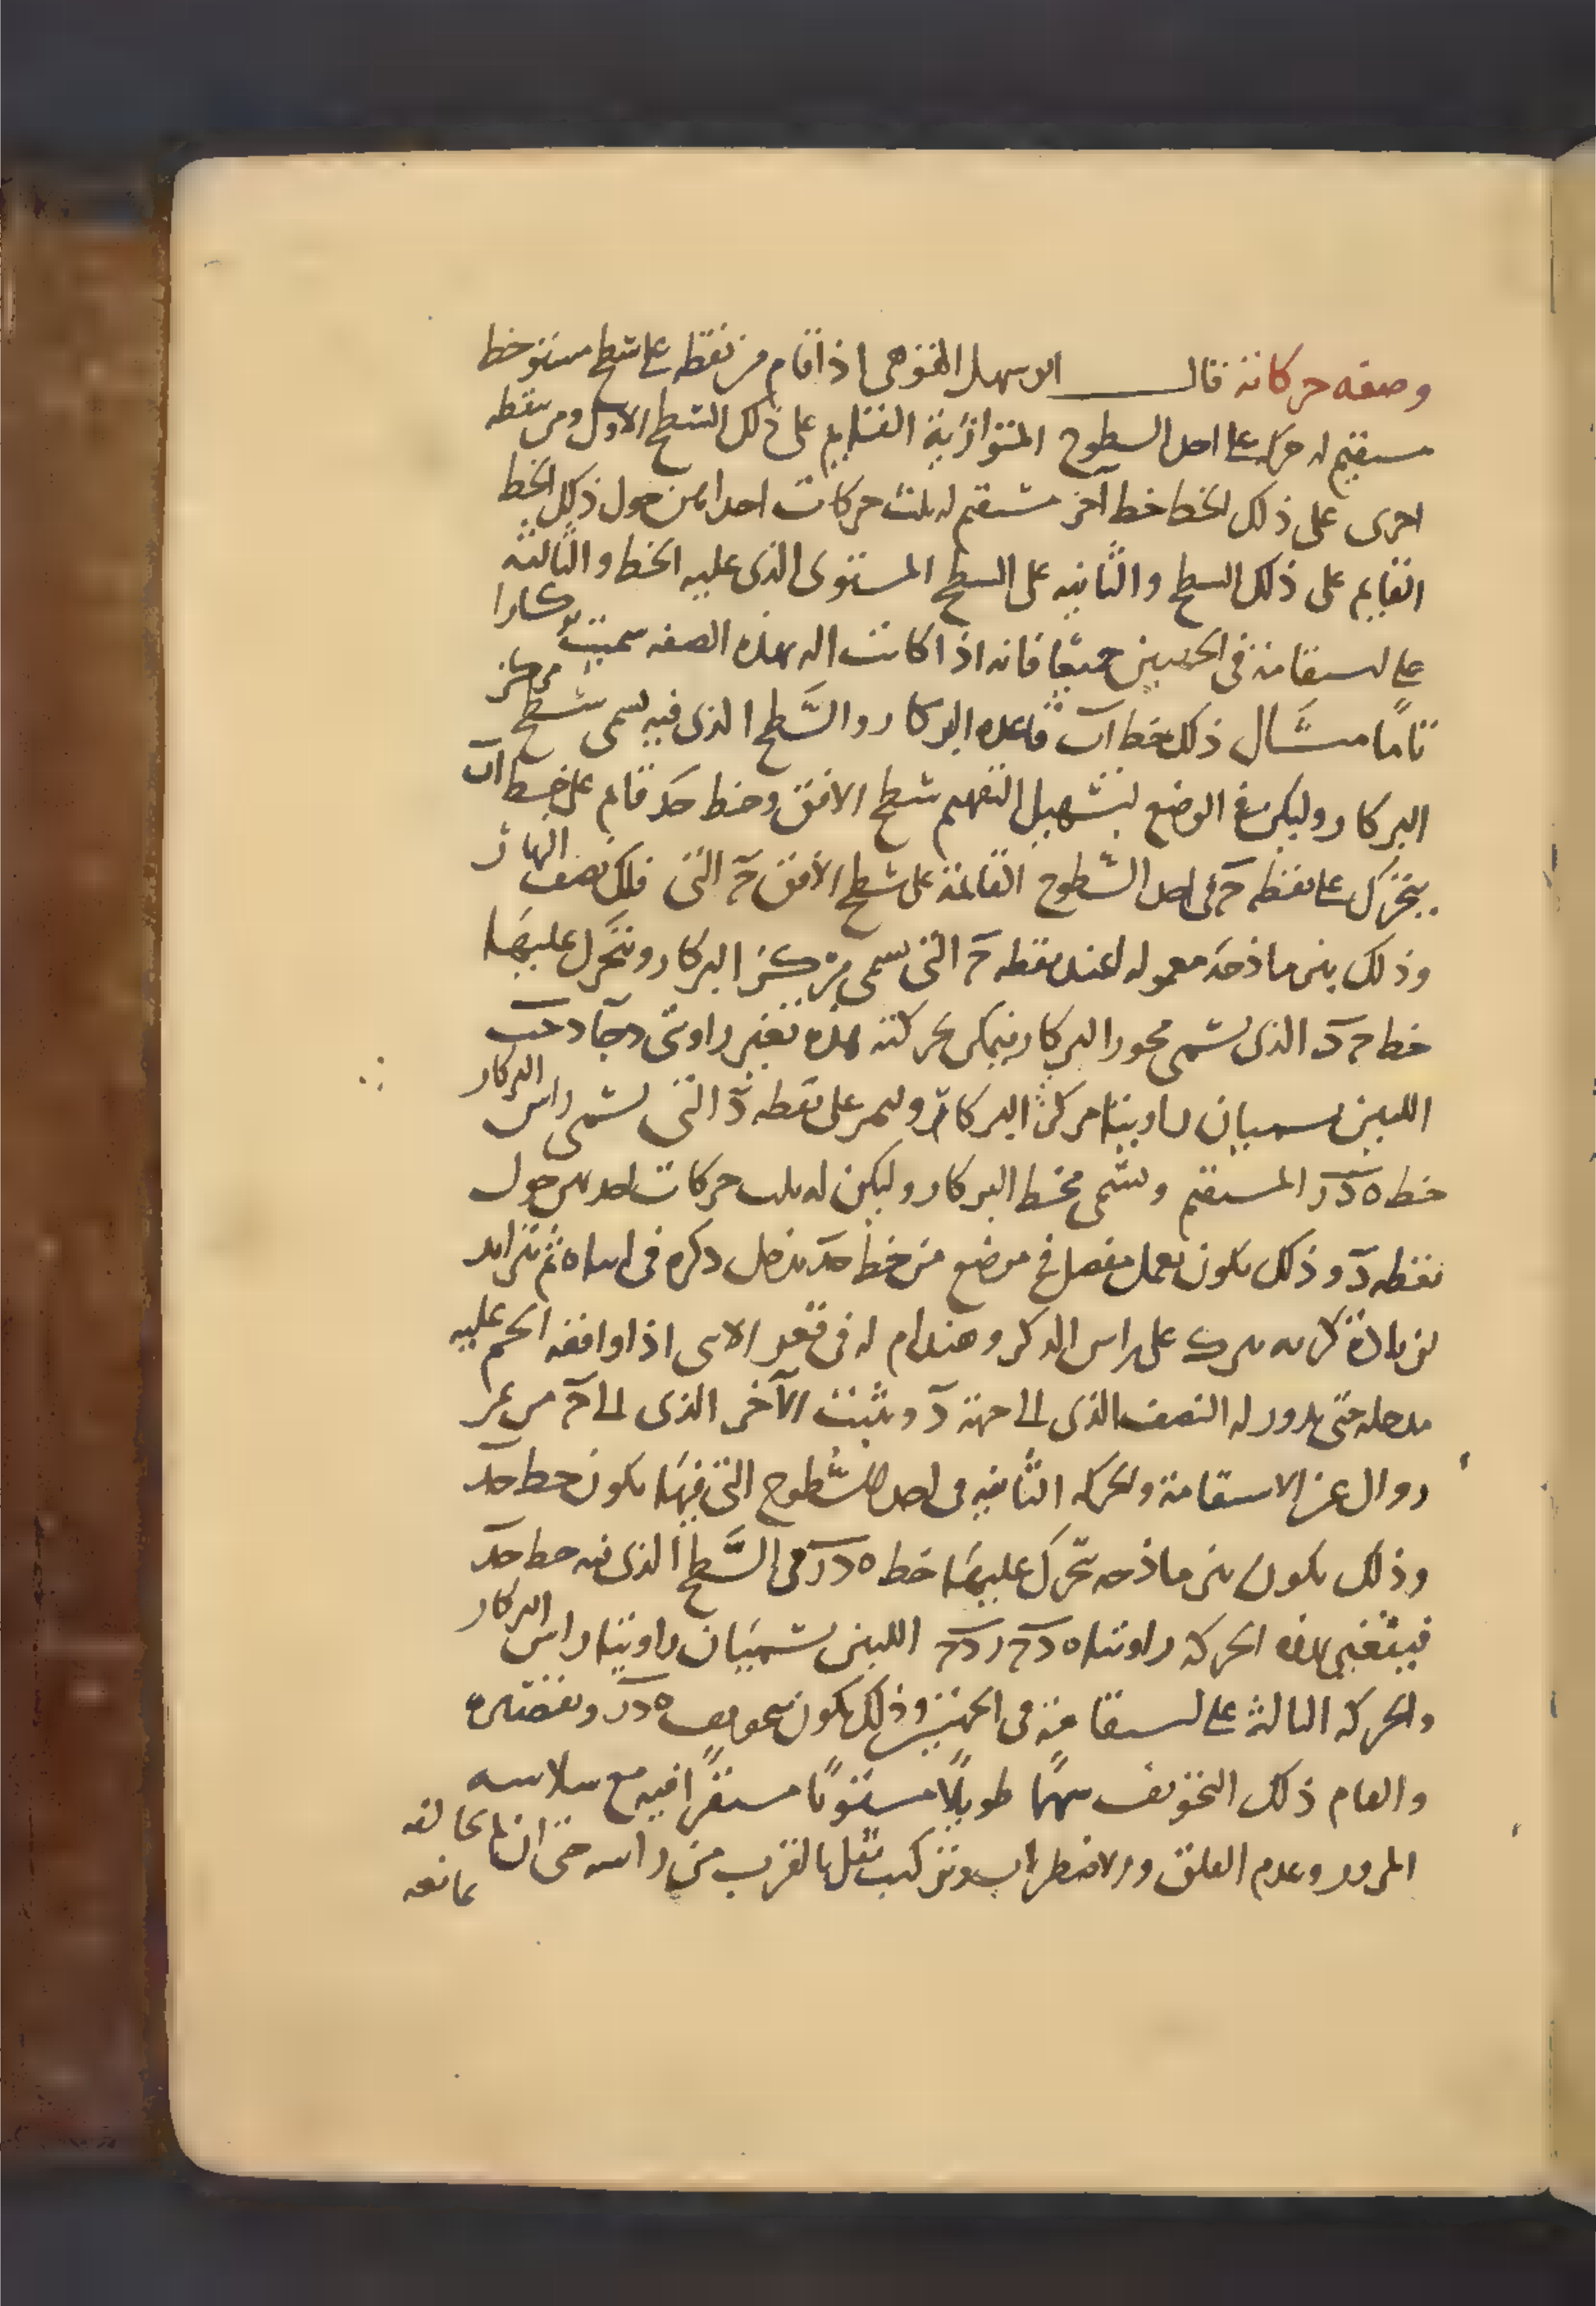 وصفه حركاته قال ابو سهل القوهى اذا قام من نقطه على سطح مستو خط
مستقيم له حركه على احد السطوح المتوازية القايم على ذلك السطح الاول ومن نقطه
اخرى على ذلك الخط خط آخر مستقيم له ثلث حركات احداهن حول ذلك الخط
القايم على ذلك السطح والثانيه على السطح المستوى الذى عليه الخط والثالثه
على استقامته فى الجهتين جميعا فانه اذا كانت اله بهذه الصفه سميت بركارا
تاما مثال ذلك خط اب قاعده البركار والسطح الذى فيه يسمى سطح مركز
البركار وليكن فى الوضع لتسهيل التفهم سطح الافق وخط حد قايم على خط اب
يتحرك على نقطه ح فى احد السطوح القائمة على سطح الافق ح التى فلك نصف النهار
وذلك بنرماذجه معموله عند نقطه ح التى تسمى مركز البركار ويتحرك عليها
خط ح د الذى يسمى محور البركار فيمكن بحركته هذه تغير زاويتى دحا دحب
اللتين تسميان زاويتا مركز البركار وليمر على نقطه د التى تسمى راس البركار
خط ه د ر المستقيم وتسمى مخط البركار وليكن له ثلث حركات احديهن حول
نقطه د وذلك يكون بعمل مفصل فى موضع من خط حد ذكره فى انثاه ثم تزايد
على راس الذكر وهندام له فى قعر الانثى اذا وافقه الحكم عليه
مدخله حتى يدور له النصف الذى الى جهة د ويثبت الآخر الذى الى ح من غير
زوال عن الاستقامة والحركه الثانيه فى احد السطوح التى فيها يكون خط حد
وذلك يكون بنرماذجه يتحرك عليها خط ه د ر فى السطح الذى فيه خط حد
فيتغير بهذه الحركه زاويتا ه د ح ر د ح اللتين تسميان زاويتا راس البركار
والحركه الثالثه على استقامته فى الجهتين وذلك يكون بتجويف ه د ر
والقام ذلك التجويف سهما طويلا مستويا مستقرا فيه مع سلاسه
المرور وعدم القلق والاضطراب وتركيب ثقل بالقرب من راسه حتى ان لم يخالفه
ممانعه